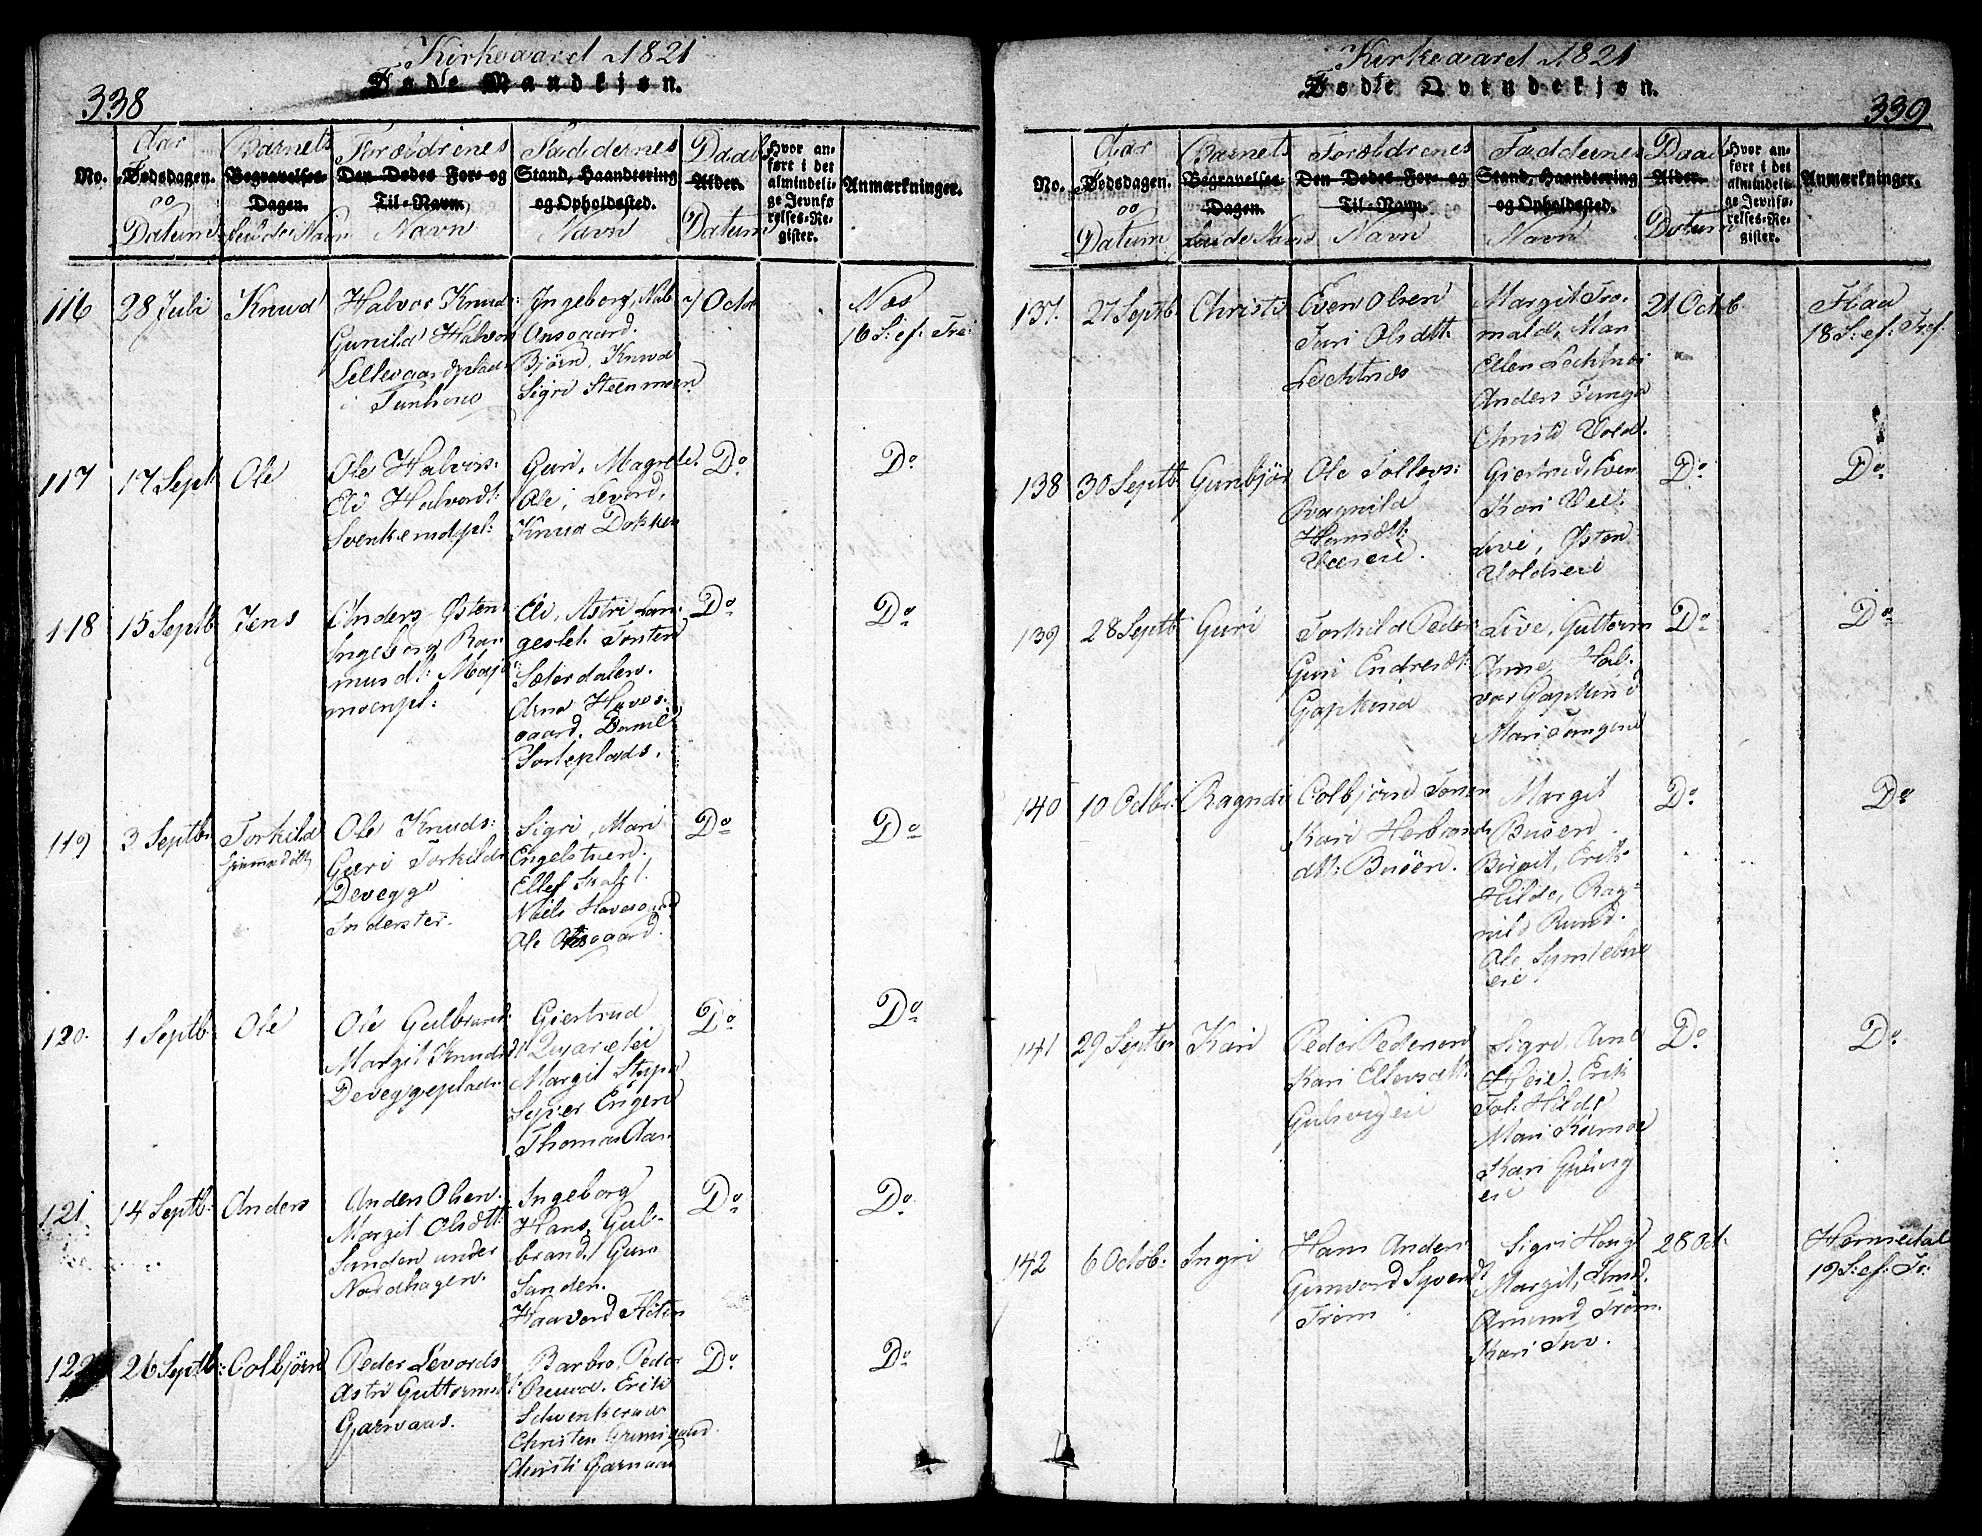 Kirkeaaret 1821
338
Fødte Mandkjøn.
No.
Aar
Dødsdagen.
og
Datum
Barnets
Begravelses-
Dagen.
fulde Navn
Forældrenes
Den Dødes For- og
Til-Navn.
Navn
Faddernes
Stand, Haandtering
og Opholdssted.
Navn
Daabs
Alder.
Datum
Hvor an-
ført i det
almindeli-
ge Jevnfø-
relses-Re-
gister.
Anmærkninger.
116
28 Juli
Knud
Halvor Knuds:
Gunild Halvor
i Tunhovd
Ingeborg, Nub
Ansgaard.
Bjørn, Knud
Sigri Steenmoen
7 Octob
Næs
16 S: ef: Tre:
117
17 Sept:
Ole
Ole Halvors:
Eli Halvordt:
Svenkerudpl:
Guri, Magrete.
Ole, Levord,
Knud Dokken
Do
Do
118
15 Septb
Jens
Anders Østens:
Ingeborg Ras
musdt: Majo
moenpl:
Eli, Astri Lan-
geslet. Torsten
Sæterdalen.
Arne Haves-
gaard. Daniel
Sorteplads.
Do
Do
119
3 Septbr
Torkild
Ole Knuds:
Guri Torkilds
Devegge
Inderster.
Sigri, Mari
Engelstuen.
Ellef Skalst.
Niels Havesgaard
Ole Ansgaard.
Do
Do
120.
1 Septb:
Ole
Ole Gulbrands
Margit Knudsdt
Deveggeplads
Giertrud
Margit
Syver Engen
Thomas Aas.
Do
Do
121.
14 Septb:
Anders
Anders Olsen.
Margit Olsdtt:
Sanden under
Nordhagen.
Ingeborg
Hans, Gul-
brand, Guro
Sanden.
Haavord Floten
Do
Do
122
26 Septb:
Colbjørn
Peder Levords
Astri Guttormsdt
Gjarnaas.
Barbro, Peder
Erik
Svenkerud
Christen Grimsgaard.
Christi Gjarnaas
Do
Do
Kirkeaaret 1821
339
Fødte Qvindekjøn.
No.
Aar
Dødsdagen.
og
Datum
Barnets
Begravelses-
Dagen.
fulde Navn
Forældrenes
Den Dødes For- og
Til-Navn.
Navn
Faddernes
Stand, Haandtering
og Opholdssted.
Navn
Daab
Alder.
Datum
Hvor an-
ført i det
almindeli-
ge Jevnfø-
relses-Re-
gister.
Anmærkninger.
137.
27 Septb:
Christi
Even Olsen
Turi Olsdtt:
Margit Tro-
mald, Mar
Ellen
Anders Tunga
Christi Vold.
21 Octob.
Flaa
18 S: ef: Tref.
138
30 Septb
Gunbjør
Ole Tollevs:
Ragnild
Giertrud, Even
Kari Vel-
Live, Østen
Voldseie
Do
Do
139
28 Septb
Guri
Torkild Peder
Guri Endresdt:
Gaptjernd
Live, Guttorm
Anne, Hal-
vor
Mari Tungene
Do
Do
140
10 Octbr:
Ragndi
Colbjørn
Kari Herbrands
dtt: Buøen.
Margit
Buøen.
Birgit, Erik
Hilde, Rag-
nild Rund.
Ole
eie.
Do
Do
141
29 Septbr
Kari
Peder Pedersen
Kari Ellevsdtt:
Gulsvigeie
Sigri, Arne
Heie. Erik
Tol. Hilde
Mari
Kari Gulsvig
eie
Do
Do
142
6 Octob:
Ingri
Hans Anders
Gunvord Syversdt
Trøm
Sigri Haugl
Margit,
Amund Trøm.
Kari Tuv.
28 Oct.
Hemsedal
19 S: ef: Tr: